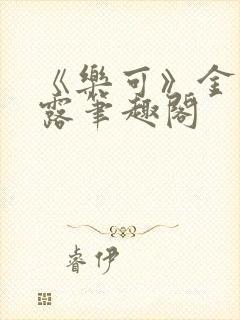 《樂可》金
露筆趣閣
睿伊